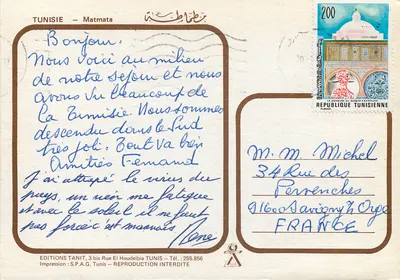 TUNISIE – Matmata
Bonjour.
Nous voici au milieu
de notre séjour et nous
avons vu beaucoup de
la Tunisie. Nous sommes
descendu dans le Sud
très joli. Tout va bien
Amitiés Fernand
J'ai attrapé le virus du
pays, un rien me fatigue
et avec le soleil il ne faut
pas forcer et
Rene
200
REPUBLIQUE TUNISIENNE
M. M. Michel
34 Rue des
Pervenches
91600 Savigny s/ Orge
FRANCE
EDITIONS TANIT, 3 bis Rue El Houdeibia TUNIS – Tél. : 255.856
Impression : S.P.A.G. Tunis – REPRODUCTION INTERDITE